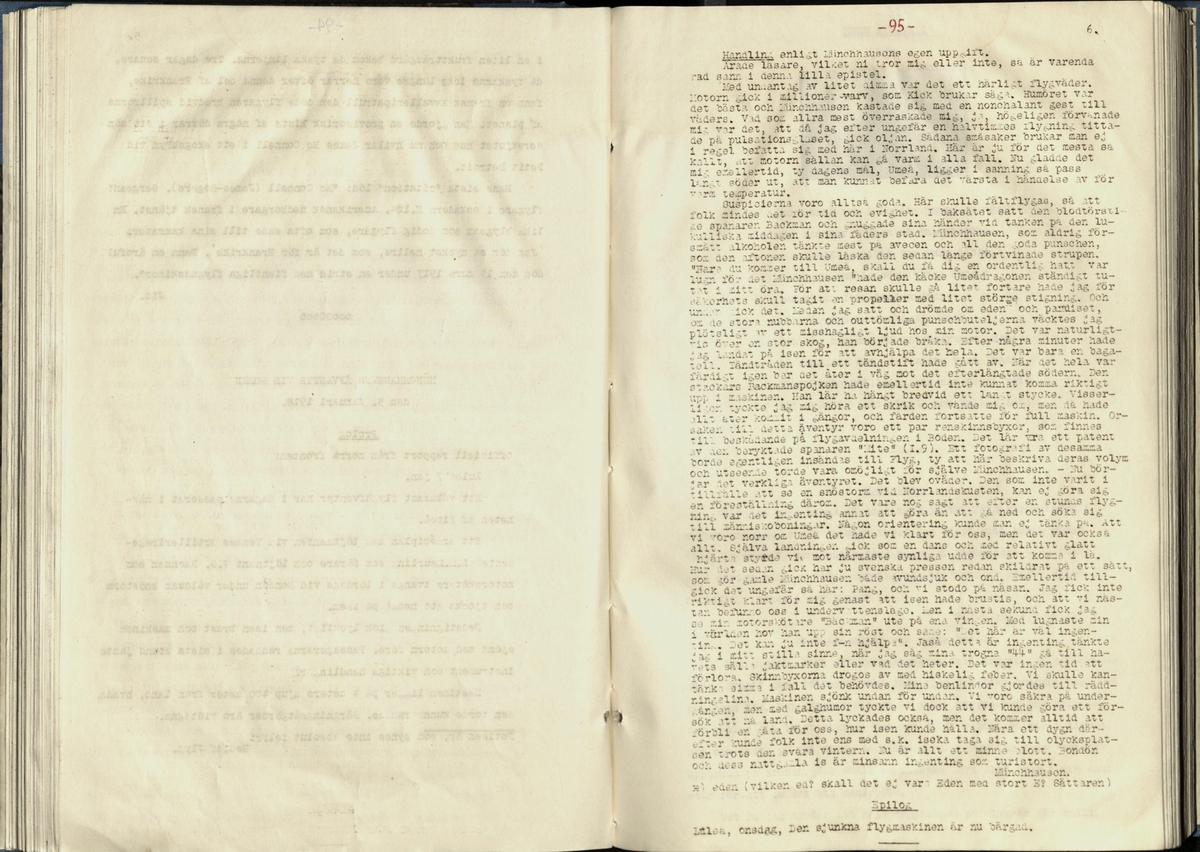 -95-
6.
Handling enligt Münchhausens egen uppgift.
Ärade läsare, vilket ni tror mig eller inte, så är varenda
rad sann i denna lilla epistel.
Med undantag av litet dimma var det ett härligt flygväder.
Motorn gick i millioner-varv, som Kick brukar säga. Humöret var
det bästa och Münchhausen kastade sig med en nonchalant gest till
väders. Vad som allra mest överraskade mig, ja, högeligen förvånade
mig var det, att då jag efter ungefär en halvtimmes flygning titta-
de på pulsationsglaset, gick oljan. Sådana småsaker brukar man ej
i regel befatta sig med här i Norrland. Här är ju för det mesta så
kallt, att motorn sällan kan gå varm i alla fall. Nu gladde det
mig emellertid, ty dagens mål, Umeå, ligger i sanning så pass
långt söder ut, att man kunnat befara det värsta i händelse av för
varm temperatur.
Auspicierna voro alltså goda. Här skulle fältflygas, så att
folk mindes det för tid och evighet. I baksätet satt den blodtörsti-
ge spanaren Backman och gnuggade sina händer vid tanken på den lu-
kulliska middagen i sina fäders stad. Münchhausen, som aldrig för-
smått alkoholen tänkte mest på avecen och all den goda punschen,
som den aftonen skulle läska den sedan länge förtvinade strupen.
"Bara du kommer till Umeå, skall du få dig en ordentlig hatt var
lugn för det Münchhausen "hade den käcke Umeådragonen ständigt tu-
tat i mitt öra. För att resan skulle gå litet fortare hade jag för
säkerhets skull tagit en propeller med litet större stigning. Och
undan gick det. Medan jag satt och drömde om eden och paradiset,
om de stora nubbarna och outtömliga punschbuteljerna väcktes jag
plötsligt av ett misshagligt ljud hos min motor. Det var naturligt-
vis över en stor skog, han började bråka. Efter några minuter hade
jag landat på isen för att avhjälpa det hela. Det var bara en baga-
tell. Tändtråden till ett tändstift hade gått av. När det hela var
färdigt igen bar det åter i väg mot det efterlängtade södern. Den
stackars Backmanspojken hade emellertid inte kunnat komma riktigt
upp i maskinen. Han lär ha hängt bredvid ett långt stycke. Visser-
ligen tyckte jag mig höra ett skrik och vände mig om, men då hade
allt åter kommit i gängor, och färden fortsatte för full maskin. Or-
saken till detta äventyr voro ett par renskinnsbyxor, som finnes
till beskådande på flygavdelningen i Boden. Det lär vara ett patent
av den beryktade spanaren "Kite" (I.9). Ett fotografi av desamma
borde egentligen insändas till Flyg, ty att här beskriva deras volym
och utseende torde vara omöjligt för själve Münchhausen. - Nu bör-
jar det verkliga äventyret. Det blev oväder. Den som inte varit i
tillfälle att se en snöstorm vid Norrlandskusten, kan ej göra sig
en föreställning därom. Det vare nog sagt att efter en stunds flyg-
ning var det ingenting annat att göra än att gå ned och söka sig
till människoboningar. Någon orientering kunde man ej tänka på. Att
vi voro norr om Umeå det hade vi klart för oss, men det var också
allt. Själva landningen gick som en dans och med relativt glatt
hjärta styrde vi mot närmaste synliga udde för att komma i lä.
Hur det sedan gick har ju svenska pressen redan skildrat på ett sätt,
som gör gamle Münchhausen både avundsjuk och ond. Emellertid till-
gick det ungefär så här: Pang, och vi stodo på näsan. Jag fick inte
riktigt klart för mig genast att isen hade brustit, och att vi näs-
tan befunno oss i undervattensläge. Men i nästa sekund fick jag
se min motorskötare "Backman" ute på ena vingen. Med lugnaste min
i världen hov han upp sin röst och sade: "Det här är väl ingen-
ting. Det kan ju inte f-n hjälpa". Jaså detta är ingenting tänkte
jag i mitt stilla sinne, när jag såg mina trogna "44" gå till ha-
vets sälla jaktmarker eller vad det heter. Det var ingen tid att
förlora. Skinnbyxorna drogos av med hiskelig feber. Vi skulle kan-
tänka simma i fall det behövdes. Mina benlindor gjordes till rädd-
ningslina. Maskinen sjönk undan för undan. Vi voro säkra på under-
gången, men med galghumor tyckte vi dock att vi kunde göra ett för-
sök att nå land. Detta lyckades också, men det kommer alltid att
förbli en gåta för oss, hur isen kunde hålla. Nära ett dygn där-
efter kunde folk inte ens med s.k. iseka taga sig till olycksplat-
sen trots den svåra vintern. Nu är allt ett minne blott. Bondön
och dess nattgamla is är minsann ingenting som turistort.
Münchhausen.
x) eden (vilken ed? skall det ej vara Eden med stort E? Sättaren)
Epilog
Luleå, onsdag, Den sjunkna flygmaskinen är nu bärgad.